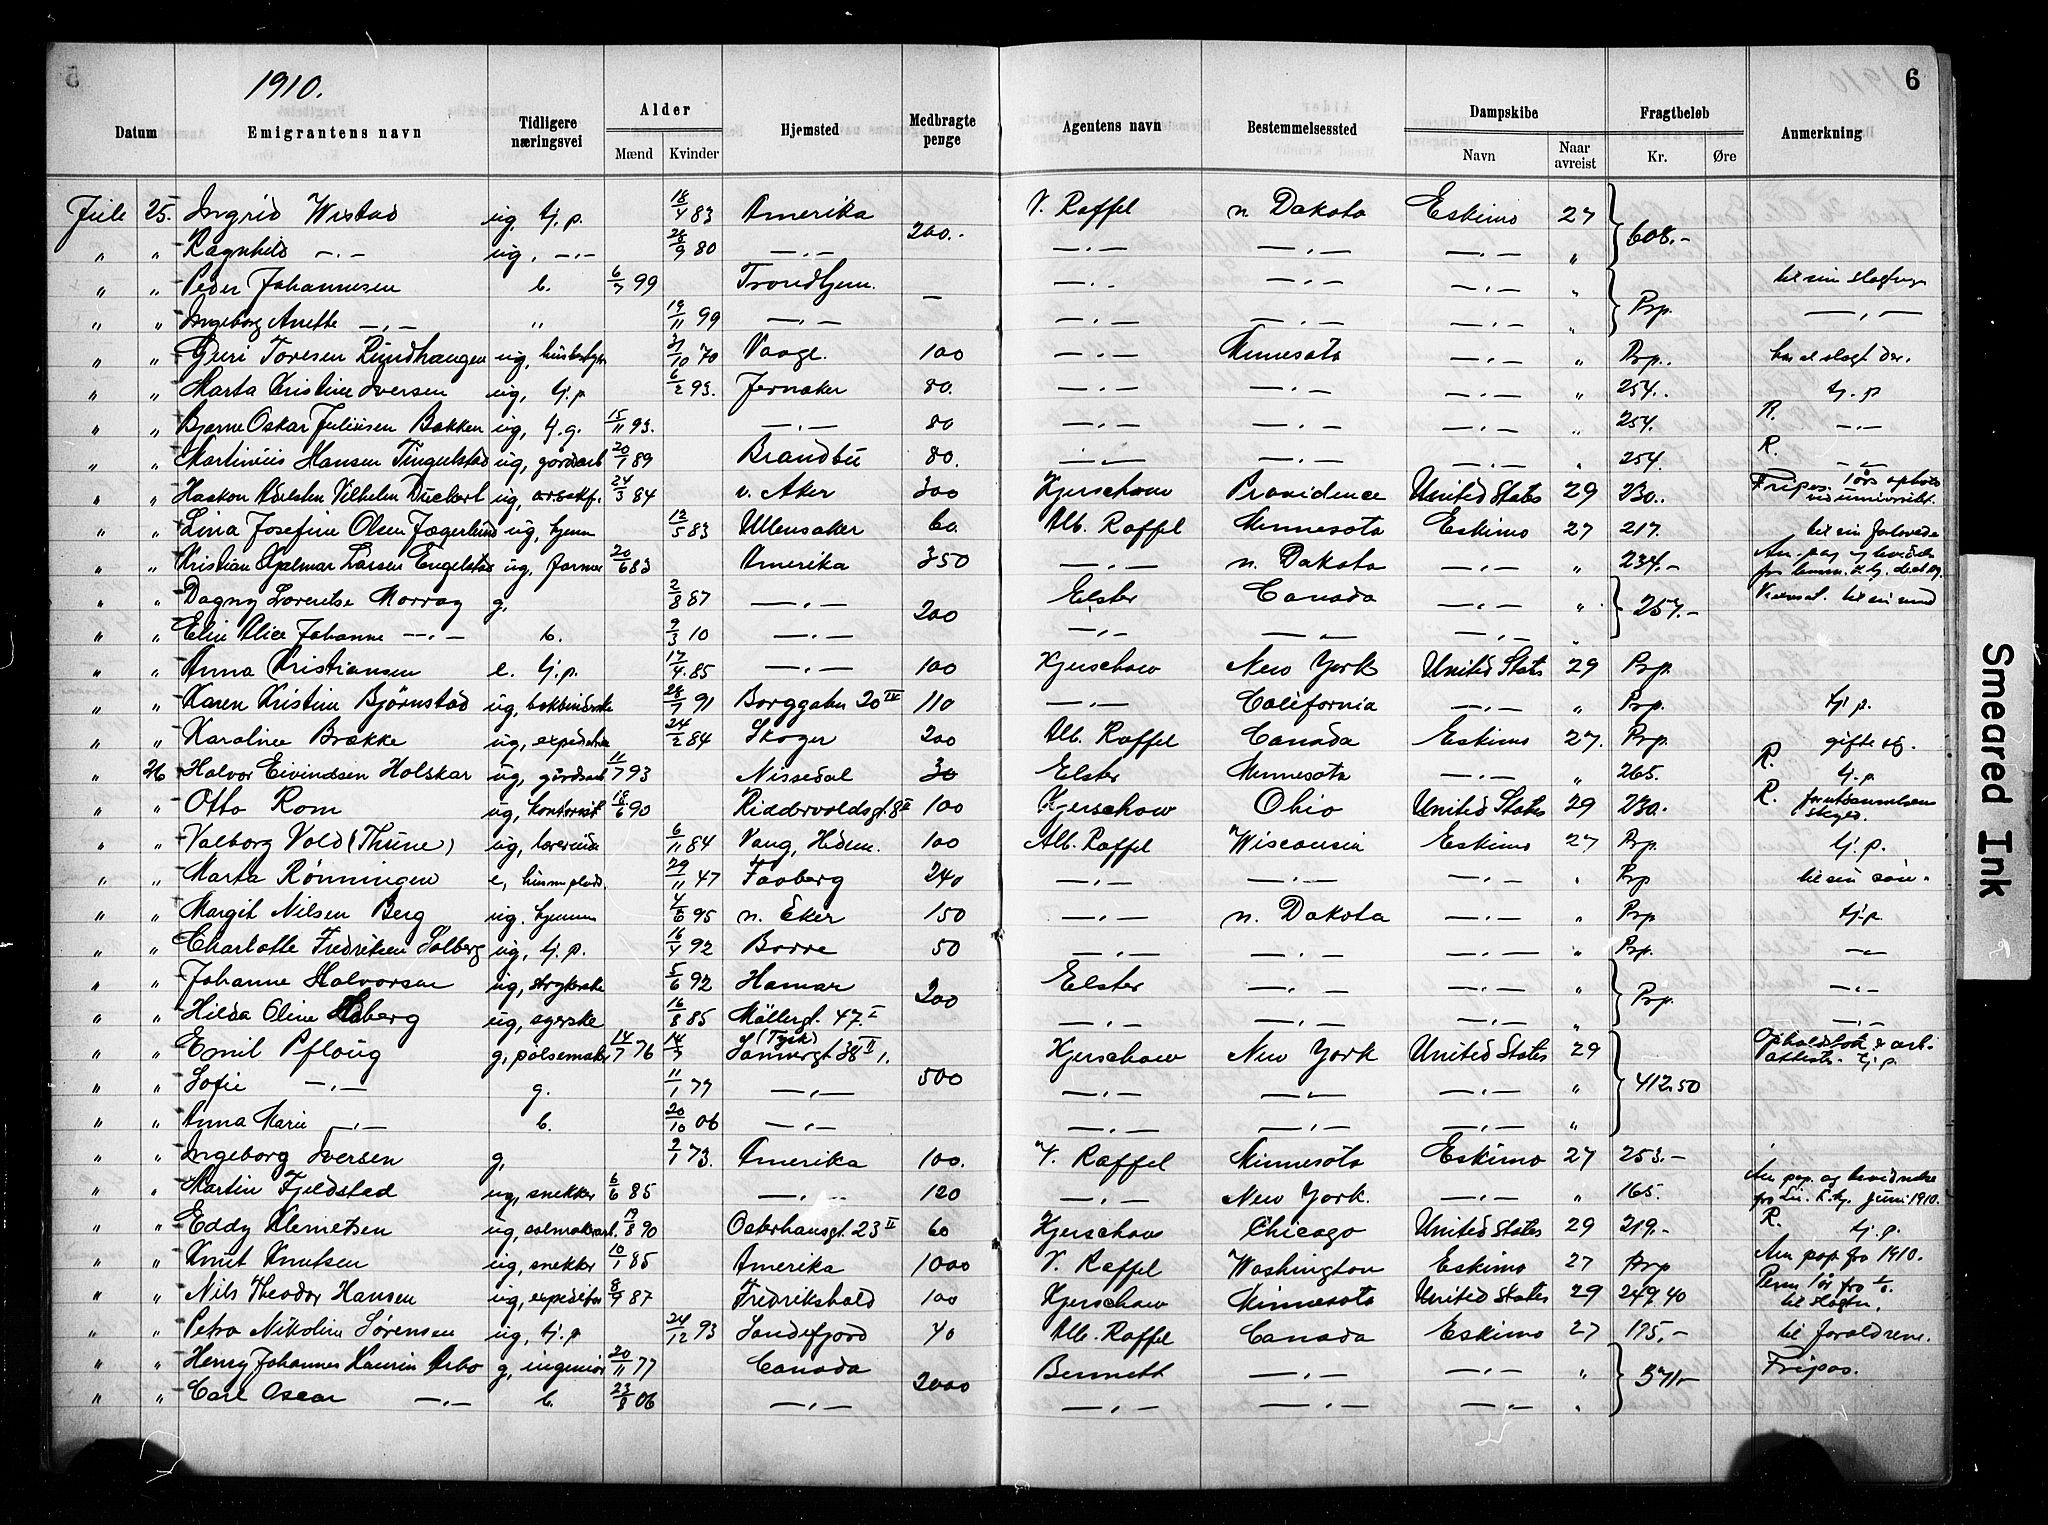 1910.
6
Datum | Emigrantens navn | Tidligere næringsvei | Alder Mænd | Kvinder | Hjemsted | Medbragte penge | Agentens navn | Bestemmelsessted | Dampskibe Navn | Naar avreist | Fragtbeløb Kr. | Øre | Anmerkning
Juli 25. Ingrid Wistad ug, tj.p. 18/4 83 Amerika 200.- V. Raffel n. Dakota Eskimo 27 608.-
" " Ragnhild —.— ug, —.— 28/9 80 —.— —.— —.— —.— "
" " Peder Johannesen b. 6/7 99 Trondhjem. — —.— —.— —.— " Pp. til sin slegtn
" " Ingeborg Anette —.— " 19/11 99 —.— —.— —.— —.— " —.—
" " Guri Toresen Rundhaugen ug, husbestyr 31/10 70 Vaage. 100 —.— Minnesota —.— " Pp. har sl. slegt der.
" " Marta Kristine Iversen ug, tj.p 6/2 93. Jevnaker 80. —.— —.— —.— " 254. tj.p
" " Bjarne Oskar Juliusen Bakken ug, tj.g. 15/11 93. —.— 80 —.— —.— —.— " 254. R. —.—
" " Martinius Hansen Tingelstad ug, gårdsarb 20/1 89 Brandbu 80. —.— —.— —.— " 254. R. —.—
" " Haakon Adelsten Vilhelm Duckert ug, 24/3 84 v. Aker 300 Kjerschow Providence United States 29 230. Fripas.
" " Lina Josefine Olsen Jægerlund ug, hjem 12/5 83 Ullensaker 60. Alb. Raffel Minnesota Eskimo 27 217. til sin forlovede
" " Kristian Hjalmar Larsen Engelstad ug, farmer 20/6 83 Amerika 350 —.— n. Dakota —.— " 234.- Am. pag og
" " Dagny Lorentse Morray g, 2/8 87 —.— 200 Elster Canada —.— " 257.- til sin mand
" " Elin Alice Johanne —.— b. 9/3 10 —.— —.— —.— —.— "
" " Anna Kristiansen e. tj.p. 17/4 85 —.— 100 Kjerschow New York United States 29 Pp.
" " Karen Kristine Bjørnstad ug, bokbinderske 28/7 91 Borggaten 20 IV 110 —.— California —.— " Pp. tj.p.
" " Karoline Brække ug, expeditrice 24/2 84 Skoger 200 Alb. Raffel Canada Eskimo 27. Pp. gifte sg.
" 26 Halvor Eivindsen Holskar ug, gårdsarb 11/7 93 Nissedal 30 Elster Minnesota —.— " 265. R. tj.p
" " Otto Rom ug, kontorist 18/6 90 Riddervoldsgt. 8 II 100 Kjerschow Ohio United States 29 230. R.
" " Valborg Vold (Thune) ug, lærerinde 6/11 84 Vang, Hedem. 100 Alb. Raffel Wisconsin Eskimo 27 Pp. tj.p.
" " Marta Rønningen e, 29/11 47 Faaberg 240 —.— —.— —.— " Pp til sin søn.
" " Margit Nilsen Berg ug. hjemme 4/6 95 n. Eker 150 —.— n. Dakota —.— " Pp. tj.p
" " Charlotte Fredriksen Solberg ug, tj.p. 16/4 92 Borre 50 —.— —.— —.— " Pp. —.—
" " Johanne Halvorsen ug, strykerske 5/6 92 Hamar 200 Elster —.— —.— " Pp. —.—
" " Hilda Oline Moberg ug, syerske 16/8 85 Møllergt. 47. I —.— —.— —.— " —.—
" " Emil Pfloug g, pølsemaker 14/7 76 14/7 (Tysk) Sannergt 38 II 1. 500 Kjerschow New York United States 29 412.50 Opholdsbok & arb. attester. tj.p.
" " Sofie —.— g. 11/1 77 —.— —.— —.— —.— "
" " Anna Marie —.— b. 20/10 06 —.— —.— —.— —.— "
" " Ingeborg Iversen g, 2/1 73. Amerika 100. V. Raffel Minnesota Eskimo 27 253.-
" " Martin Fjeldstad ug, snekker 6/6 85 —.— 120 —.— New York. —.— " 165. Am pap. og Juni 1910.
" " Eddy Klemetsen ug, salmakerarb. 19/8 90 Osterhausgt. 23 II 60 Kjerschow Chicago United States 29 219.- R. tj.p.
" " Knut Knutsen ug, snekker 10/1 85 Amerika 1000 V. Raffel Washington Eskimo 27 Pp Am pap. fra 1910.
" " Nils Theodor Hansen ug, expeditør 8/7 87 Fredrikshald 100 Kjerschow Minnesota United States 29 249,40 til slegtn.
" " Petra Nikoline Sørensen ug, tj.p 24/12 93 Sandefjord 40 Alb. Raffel Canada Eskimo 27 195.- til forældrene.
" " Henry Johannes Kaurin Arbo g, ingeniør 20/11 77 Canada 2000 Bennett —.— —.— " 571.- Fripas.
" " Carl Oscar —.— b. 23/8 06 —.— —.— —.— —.— "
Smeared Ink